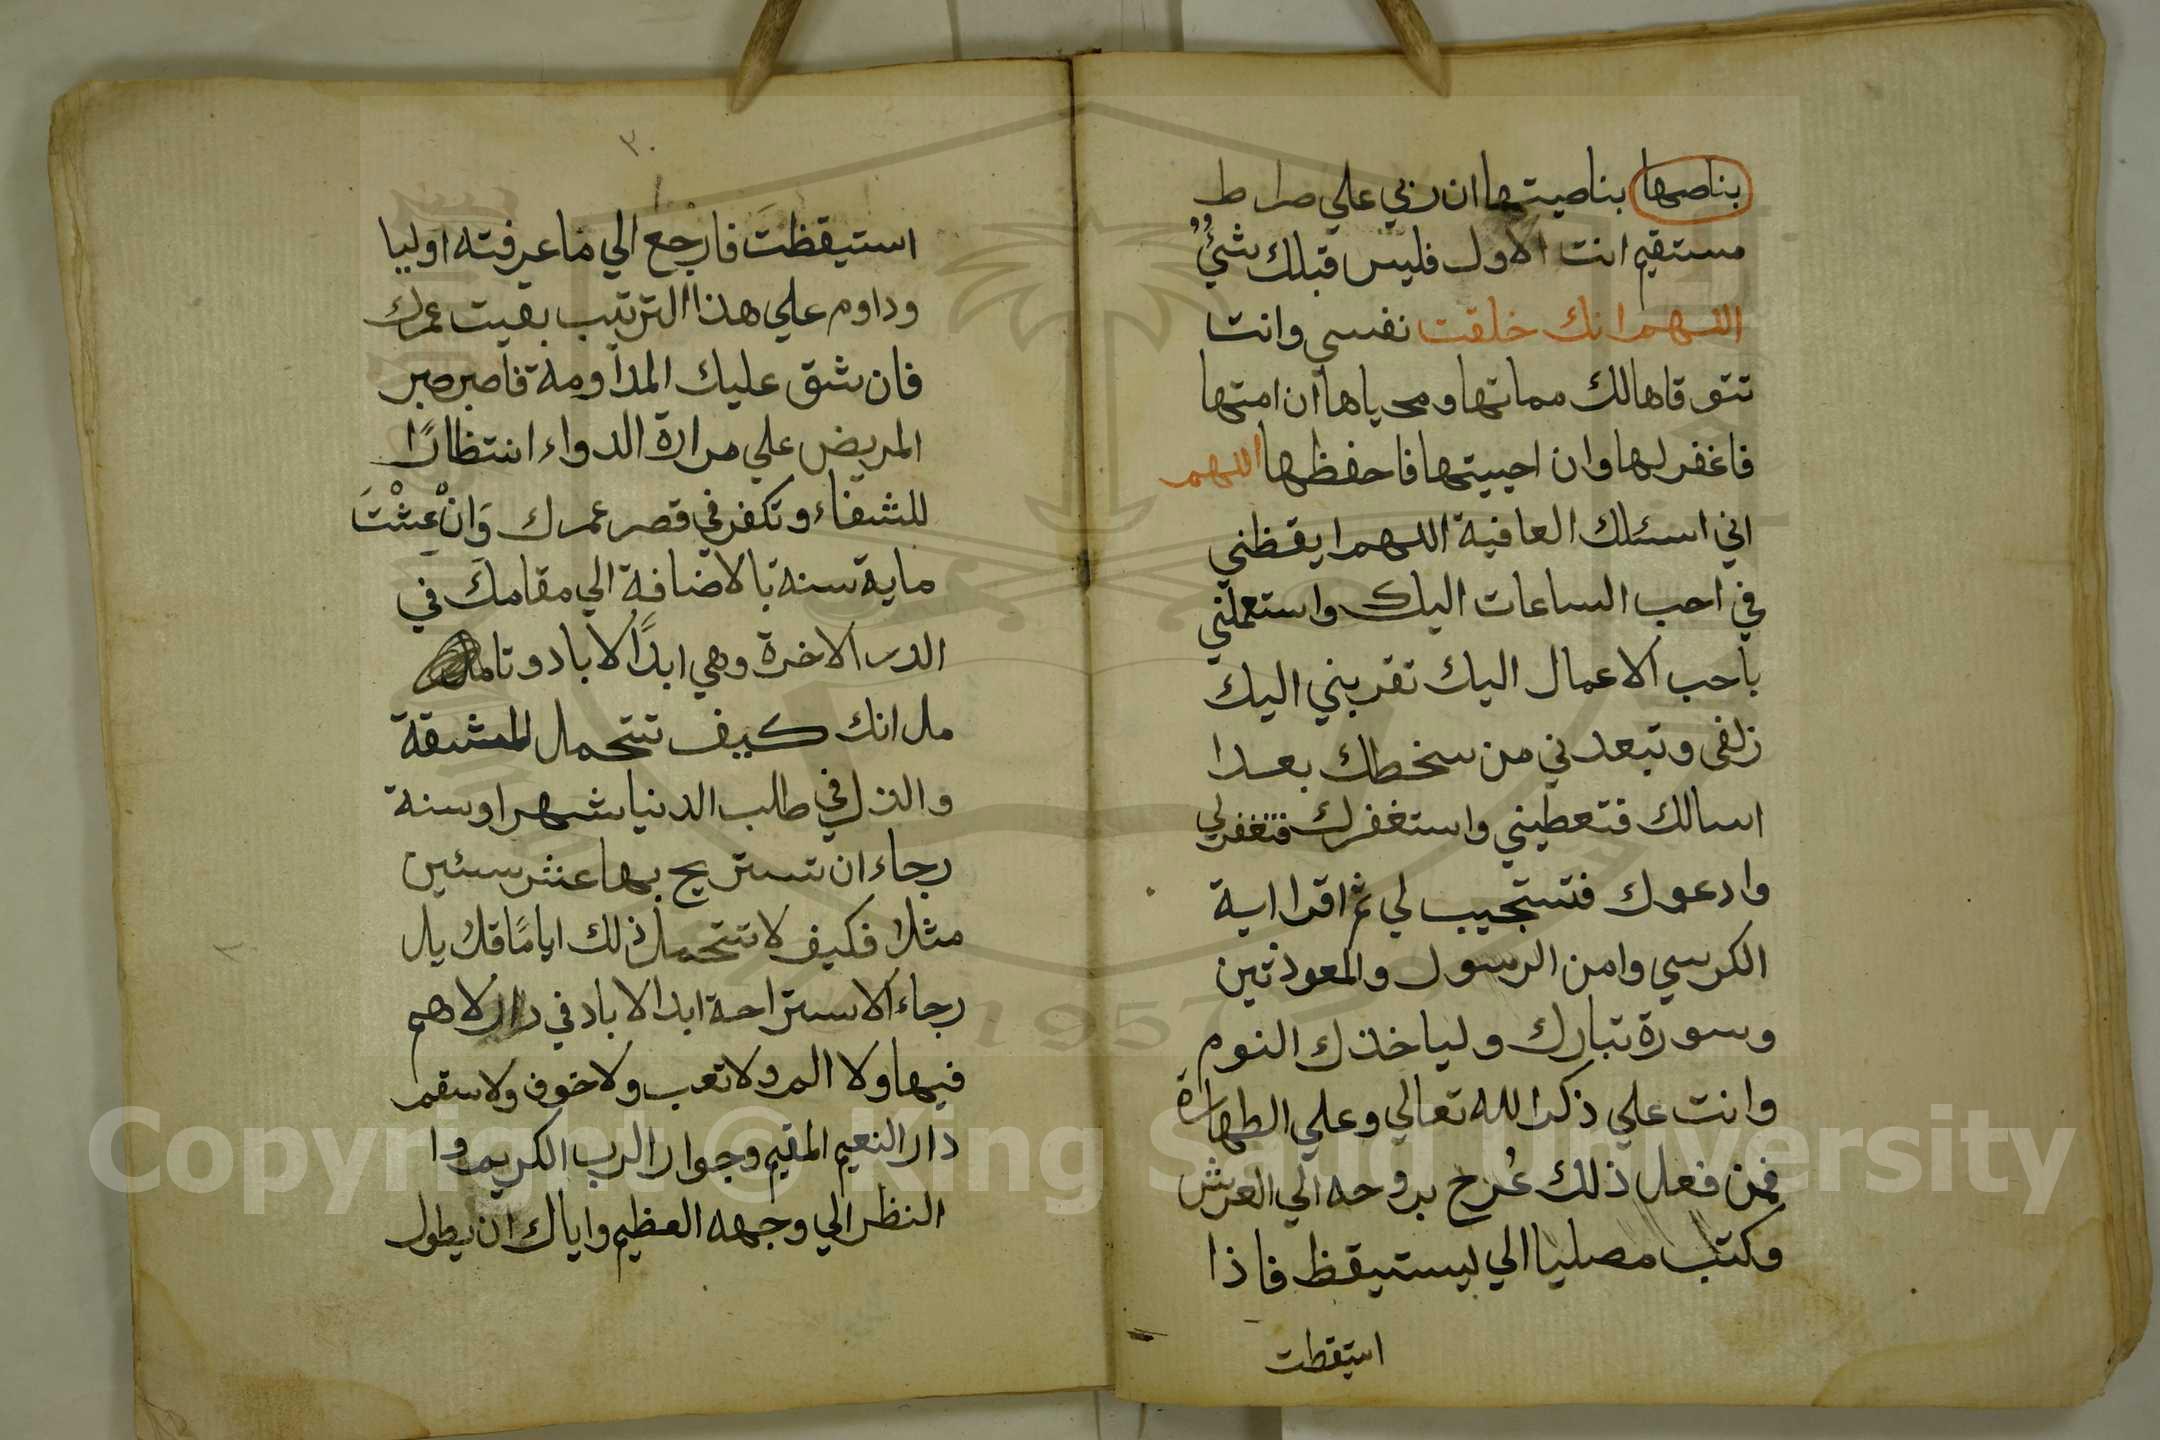 بناصيها بناصيتها ان ربي علي صراط
مستقيم انت الاول فليس قبلك شيء
اللهم انك خلقت نفسي وانت
تتوفاها لك مماتها ومحياها ان امتها
فاغفر لها وان احييتها فاحفظها اللهم
اني اسئلك العافية اللهم ايقظني
في احب الساعات اليك واستعملني
باحب الاعمال اليك تقربني اليك
زلفى وتبعدني من سخطك بعدا
اسالك فتعطيني واستغفرك فتغفر لي
وادعوك فتستجيب لي ثم اقرا اية
الكرسي وامن الرسول والمعوذتين
وسورة تبارك ولياخذك النوم
وانت علي ذكر الله تعالي وعلي الطهارة
فمن فعل ذلك عُرج بروحه الي العرش
وكتب مصليا الي ليستيقظ فاذا
استيقظت
٣٠
استيقظتَ فارجع الي ما عرفته اوليا
وداوم علي هذا الترتيب بقيت عمرك
فان شق عليك المداومة فاصبر صبر
المريض علي مرارة الدواء انتظارًا
للشفاء وتكفر في قصر عمرك وَانْ عِشْتَ
ماية سنة بالاضافة الي مقامك في
الدر الاخرة وهي ابدًا لاباد وتامل
مل انك كيف تتحمل المشقة
والذل في طلب الدنيا شهرا وسنة
رجاء ان تستريح بها عشر سنين
مثلا فكيف لا تتحمل ذلك ايامًا قلايل
رجاء الاستراحة ابد الاباد في دار لا هم
فيها ولا الم ولا تعب ولا خوف ولا سقم
دار النعيم المقيم وجوار الرب الكريم وا
النظر الي وجهه العظيم واياك ان يطول
Copyright © King Saud University
1957